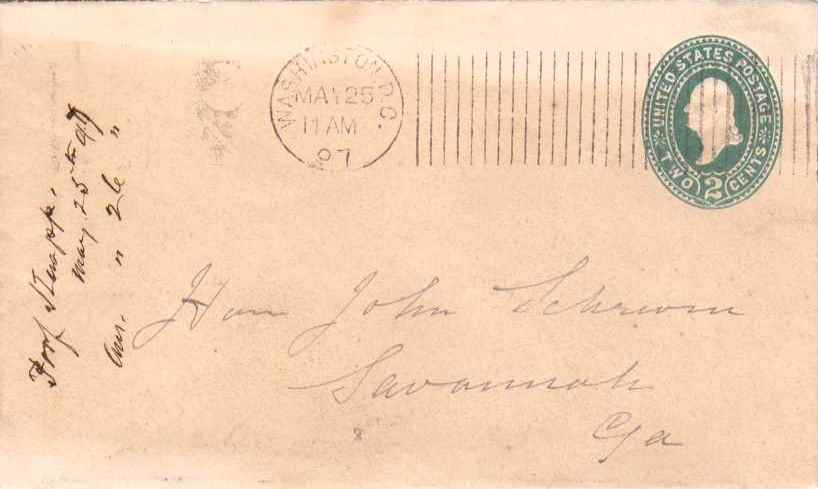 WASHINGTON, D.C.
MAY 25
11 AM
97
UNITED STATES POSTAGE
TWO 2 CENTS
Hon John Schwom
Savannah
Ga
May 25th 97
Ans. " 26 "